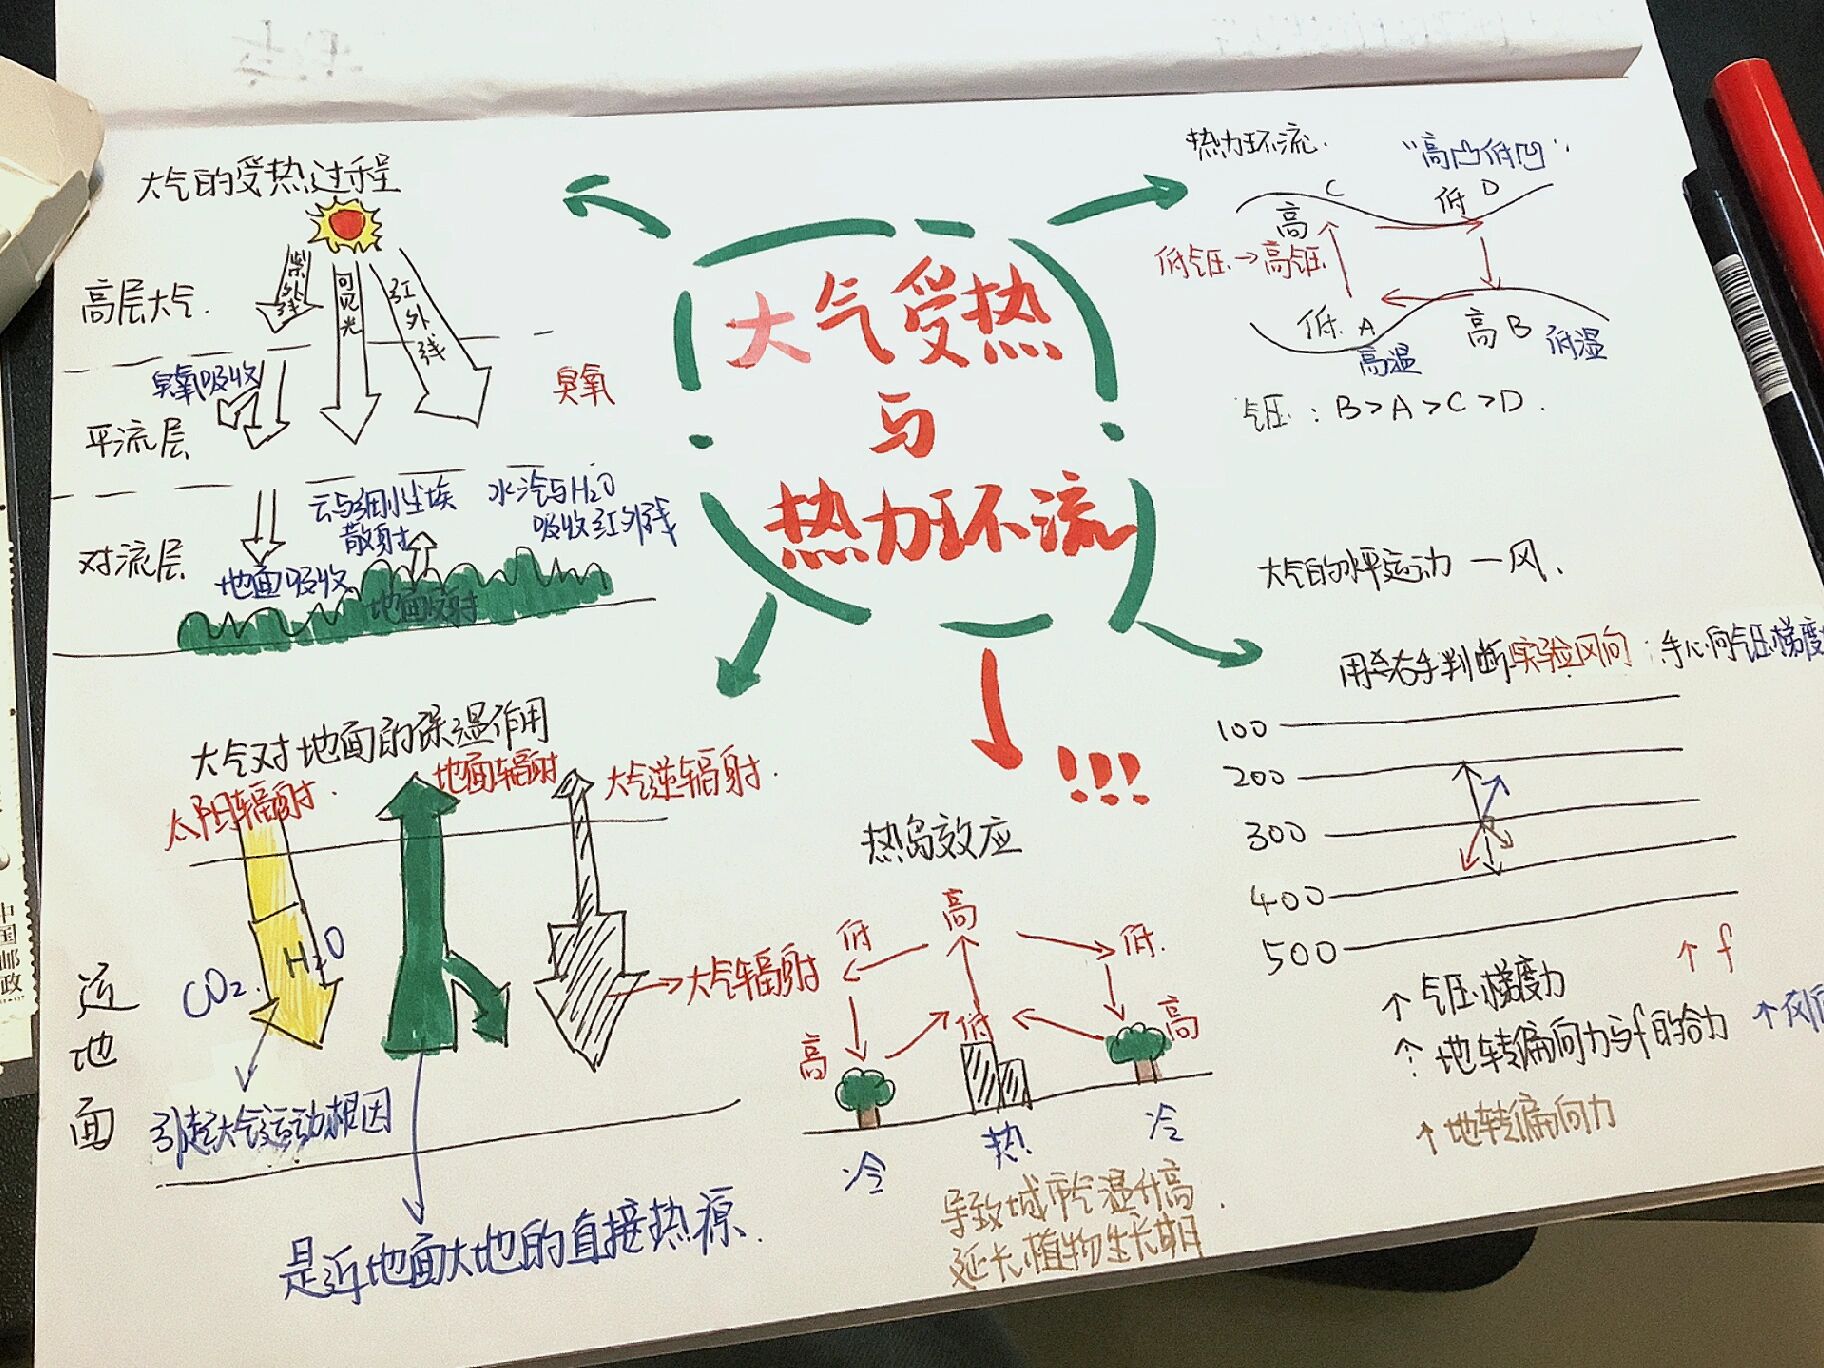 大气受热
与
热力环流
大气的受热过程
紫外线
可见光
红外线
高层大气.
臭氧吸收
臭氧
平流层
云与细小尘埃
散射
水汽与H₂O
吸收红外线
对流层
地面吸收
地面反射
热力环流.
"高凸低凹".
C
低 D
高
低气压→高气压
低 A
高 B
高温
低温
气压:B>A>C>D.
大气对地面的保温作用
太阳辐射.
地面辐射
大气逆辐射.
CO₂.
H₂O
大气辐射
近
地
面
引起大气运动根因
是近地面大地的直接热源.
!!!
热岛效应
低
高
低.
高
低
高
冷
热
冷
导致城市气温升高.
延长植物生长期
大气的水平运动—风.
用左右手判断实验风向:手心向气压梯度
100
200
300
400
500
↑气压梯度力
↑f
↑地转偏向力与f的合力
↑风向
↑地转偏向力
中国邮政